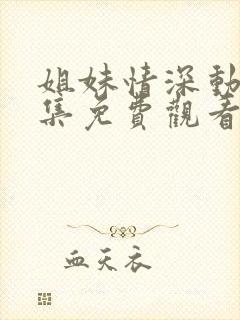 姐妹情深動
集免費觀看
血天衣